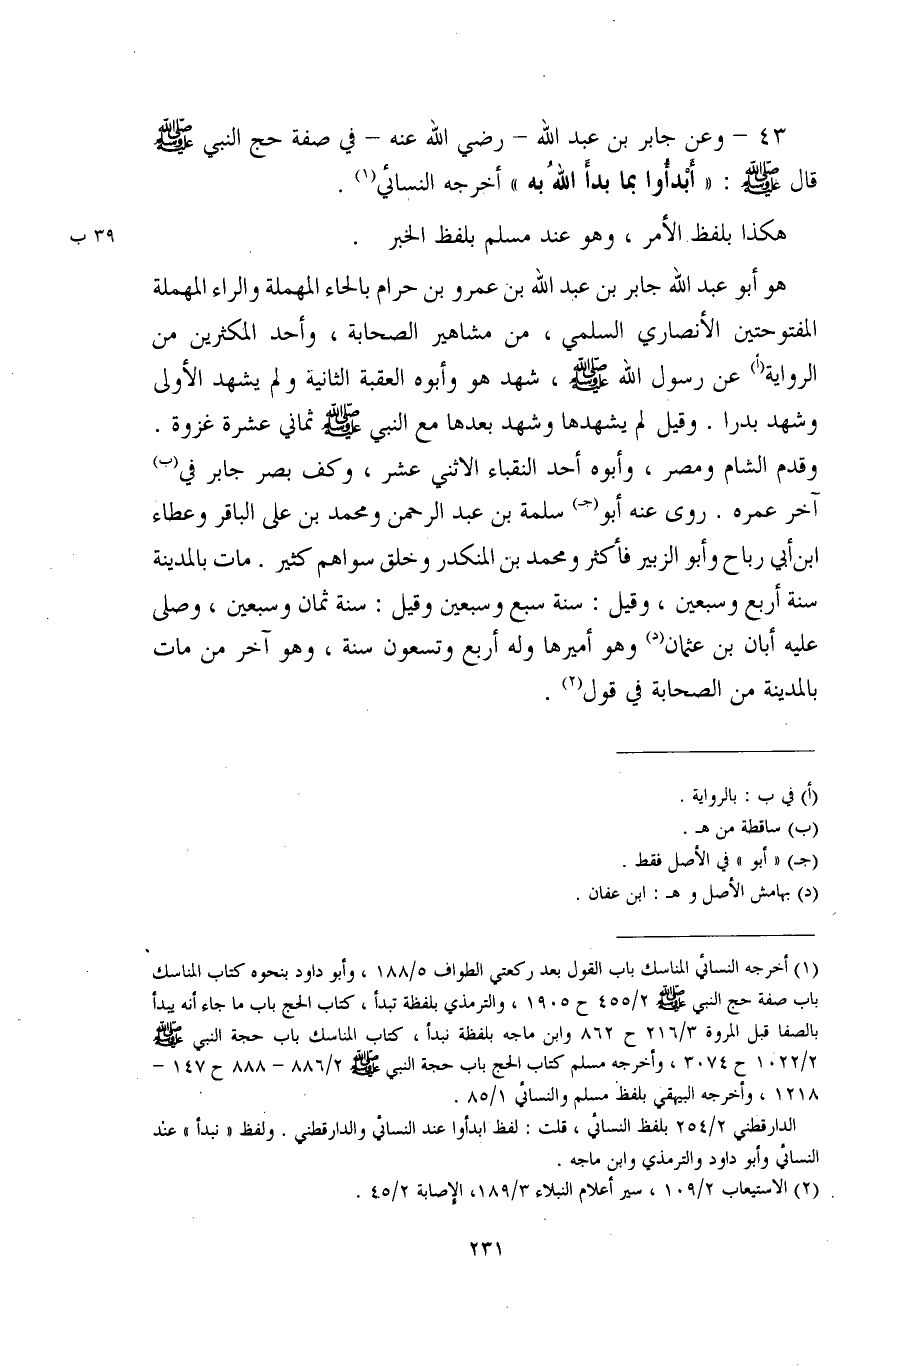 ٤٣ – وعن جابر بن عبد الله – رضي الله عنه – في صفة حج النبي ﷺ
قال ﷺ : « أَبْدأُوا بما بدأَ اللهُ به » أخرجه النسائي(١) .
هكذا بلفظ الأمر ، وهو عند مسلم بلفظ الخبر .
٣٩ ب
هو أبو عبد الله جابر بن عبد الله بن عمرو بن حرام بالحاء المهملة والراء المهملة
المفتوحتين الأنصاري السلمي ، من مشاهير الصحابة ، وأحد المكثرين من
الرواية(أ) عن رسول الله ﷺ ، شهد هو وأبوه العقبة الثانية ولم يشهد الأولى
وشهد بدرا . وقيل لم يشهدها وشهد بعدها مع النبي ﷺ ثماني عشرة غزوة .
وقدم الشام ومصر ، وأبوه أحد النقباء الاثني عشر ، وكف بصر جابر في(ب)
آخر عمره . روى عنه أبو(جـ) سلمة بن عبد الرحمن ومحمد بن على الباقر وعطاء
ابن أبي رباح وأبو الزبير فأكثر ومحمد بن المنكدر وخلق سواهم كثير . مات بالمدينة
سنة أربع وسبعين ، وقيل : سنة سبع وسبعين وقيل : سنة ثمان وسبعين ، وصلى
عليه أبان بن عثمان(د) وهو أميرها وله أربع وتسعون سنة ، وهو آخر من مات
بالمدينة من الصحابة في قول(٢) .
(أ) في ب : بالرواية .
(ب) ساقطة من هـ .
(جـ) « أبو » في الأصل فقط .
(د) بهامش الأصل و هـ : ابن عفان .
(١) أخرجه النسائي المناسك باب القول بعد ركعتي الطواف ١٨٨/٥ ، وأبو داود بنحوه كتاب المناسك
باب صفة حج النبي ﷺ ٤٥٥/٢ ح ١٩٠٥ ، والترمذي بلفظة تبدأ ، كتاب الحج باب ما جاء أنه يبدأ
بالصفا قبل المروة ٢١٦/٣ ح ٨٦٢ وابن ماجه بلفظة نبدأ ، كتاب المناسك باب حجة النبي ﷺ
١٠٢٢/٢ ح ٣٠٧٤ ، وأخرجه مسلم كتاب الحج باب حجة النبي ﷺ ٨٨٦/٢ – ٨٨٨ ح ١٤٧ –
١٢١٨ ، وأخرجه البيهقي بلفظ مسلم والنسائي ٨٥/١ .
الدارقطني ٢٥٤/٢ بلفظ النسائي ، قلت : لفظ ابدأوا عند النسائي والدارقطني . ولفظ « نبدأ » عند
النسائي وأبو داود والترمذي وابن ماجه .
(٢) الاستيعاب ١٠٩/٢ ، سير أعلام النبلاء ١٨٩/٣، الإصابة ٤٥/٢ .
٢٣١